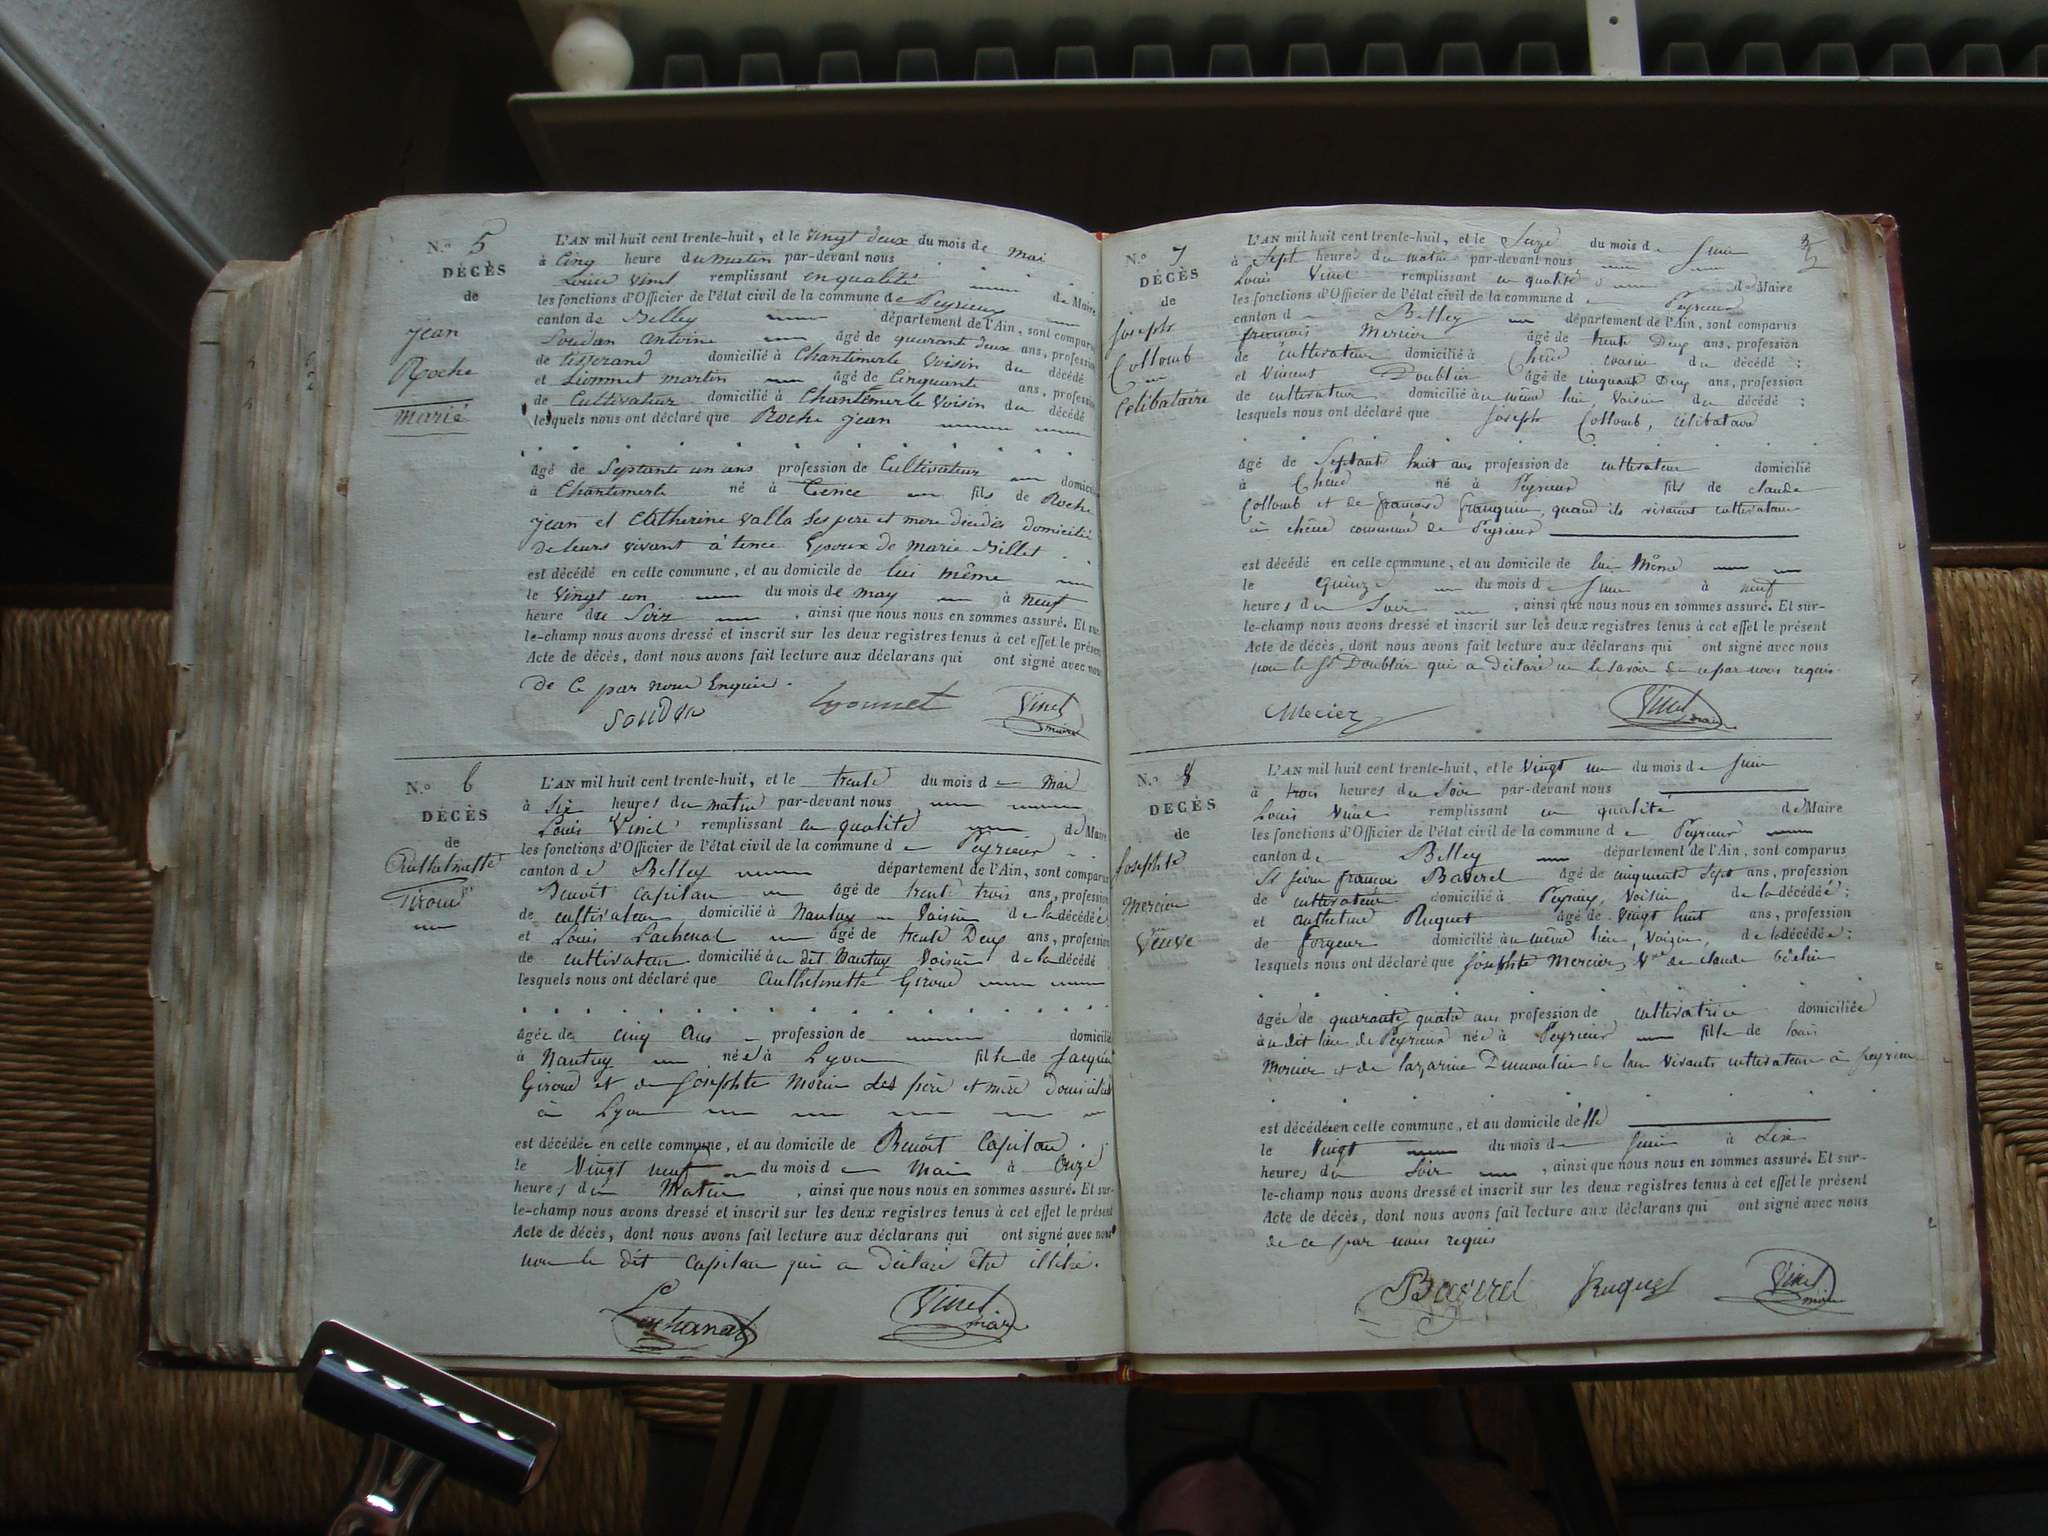 N.º 5
DÉCÈS
de
jean
Roche
marié
L'AN mil huit cent trente-huit, et le vingt deux du mois de mai
à Cinq heure du matin par-devant nous
Louis Vinel remplissant en qualité de Maire
les fonctions d'Officier de l'état civil de la commune de Peyrieux
canton de Belley département de l'Ain, sont comparus
Soudan antoine âgé de quarant deux ans, profession
de tisserand domicilié à Chantemerle Voisin du décédé
et Lionnet martin âgé de Cinquante ans, profession
de Cultivateur domicilié à Chantemerle Voisin du décédé
lesquels nous ont déclaré que Roche jean
âgé de Septante un ans profession de Cultivateur domicilié
à Chantemerle né à tence fils de Roche
jean et Catherine valla Ses pere et mere décédés domicilié
de leurs vivant à tence Epoux de marie Billet
est décédé en celle commune, et au domicile de lui même
le Vingt un du mois de may à neuf
heure du Soir, ainsi que nous nous en sommes assuré. Et sur-
le-champ nous avons dressé et inscrit sur les deux registres tenus à cet effet le présent
Acte de décès, dont nous avons fait lecture aux déclarans qui ont signé avec nous
De Ce par nous Enquis.
Soudan Lyonnet Vinel maire
N.º 6
DÉCÈS
de
Anthelmette
Giroud
L'AN mil huit cent trente-huit, et le trente du mois de mai
à Six heures du matin par-devant nous
Louis Vinel remplissant en qualité de Maire
les fonctions d'Officier de l'état civil de la commune de Peyrieux
canton de Belley département de l'Ain, sont comparus
Benoit Capitan âgé de trente trois ans, profession
de cultivateur domicilié à Nantuy Voisin de la décédée
et Louis Lachenal âgé de trente Deux ans, profession
de cultivateur domicilié à u dit Nantuy Voisin de la décédé
lesquels nous ont déclaré que Anthelmette Giroud
âgée de cinq ans profession de domicilié
à Nantuy née à Lyon fille de Jacques
Giroud et de Josephte Morin ses père et mère domiciliés
à Lyon
est décédée en celle commune, et au domicile de Benoit Capitan
le Vingt neuf du mois de mai à Onze
heures du Matin, ainsi que nous nous en sommes assuré. Et sur-
le-champ nous avons dressé et inscrit sur les deux registres tenus à cet effet le présent
Acte de décès, dont nous avons fait lecture aux déclarans qui ont signé avec nous
non le dit Capitan qui a déclaré être illitéré.
Lachanal Vinel maire
N.º 7
DÉCÈS
de
Joseph
Collomb
Célibataire
L'AN mil huit cent trente-huit, et le Seize du mois de Juin
à Sept heures du matin par-devant nous
Louis Vinel remplissant en qualité de Maire
les fonctions d'Officier de l'état civil de la commune de Peyrieux
canton de Belley département de l'Ain, sont comparus
françois Mercier âgé de trente Deux ans, profession
de cultivateur domicilié à Chêne voisin du décédé ;
et Vincent Doublier âgé de cinquante Deux ans, profession
de cultivateur domicilié au même lieu, Voisin du décédé ;
lesquels nous ont déclaré que Joseph Collomb, célibataire
âgé de Septante huit ans profession de cultivateur domicilié
à Chêne né à Peyrieux fils de claude
Collomb et de françoise franquin, quand ils vivaient cultivateurs
à chêne commune de Peyrieux
est décédé en celle commune, et au domicile de lui Même
le Quinze du mois de Juin à neuf
heures du Soir, ainsi que nous nous en sommes assuré. Et sur-
le-champ nous avons dressé et inscrit sur les deux registres tenus à cet effet le présent
Acte de décès, dont nous avons fait lecture aux déclarans qui ont signé avec nous
non le Sr Doublier qui a déclaré ne le savoir de ce par nous requis
Mecier Vinel maire
N.º 8
DECÈS
de
Josephte
Mercier
Veuve
L'AN mil huit cent trente-huit, et le Vingt un du mois de Juin
à trois heures du Soir par-devant nous
Louis Vinel remplissant en qualité de Maire
les fonctions d'Officier de l'état civil de la commune de Peyrieux
canton de Belley département de l'Ain, sont comparus
françois Baverel âgé de cinquante Sept ans, profession
de cultivateur domicilié à Peyrieux, Voisin de la décédée ;
et Anthelme Ruquet âgé de vingt huit ans, profession
de forgeur domicilié au même lieu, Voisin, de la décédée :
lesquels nous ont déclaré que Josephte Mercier, Vve de claude
âgée de quarante quatre ans profession de cultivatrice domiciliée
à u dit lieu de Peyrieux née à Peyrieux fille de Louis
Mercier et de lazarine Dumoulin de leur Vivants cultivateurs à Peyrieux
est décédée en celle commune, et au domicile d'elle
le Vingt du mois de Juin à Six
heures du Soir, ainsi que nous nous en sommes assuré. Et sur-
le-champ nous avons dressé et inscrit sur les deux registres tenus à cet effet le présent
Acte de décès, dont nous avons fait lecture aux déclarans qui ont signé avec nous
de ce par nous requis
Baverel Ruquet Vinel maire